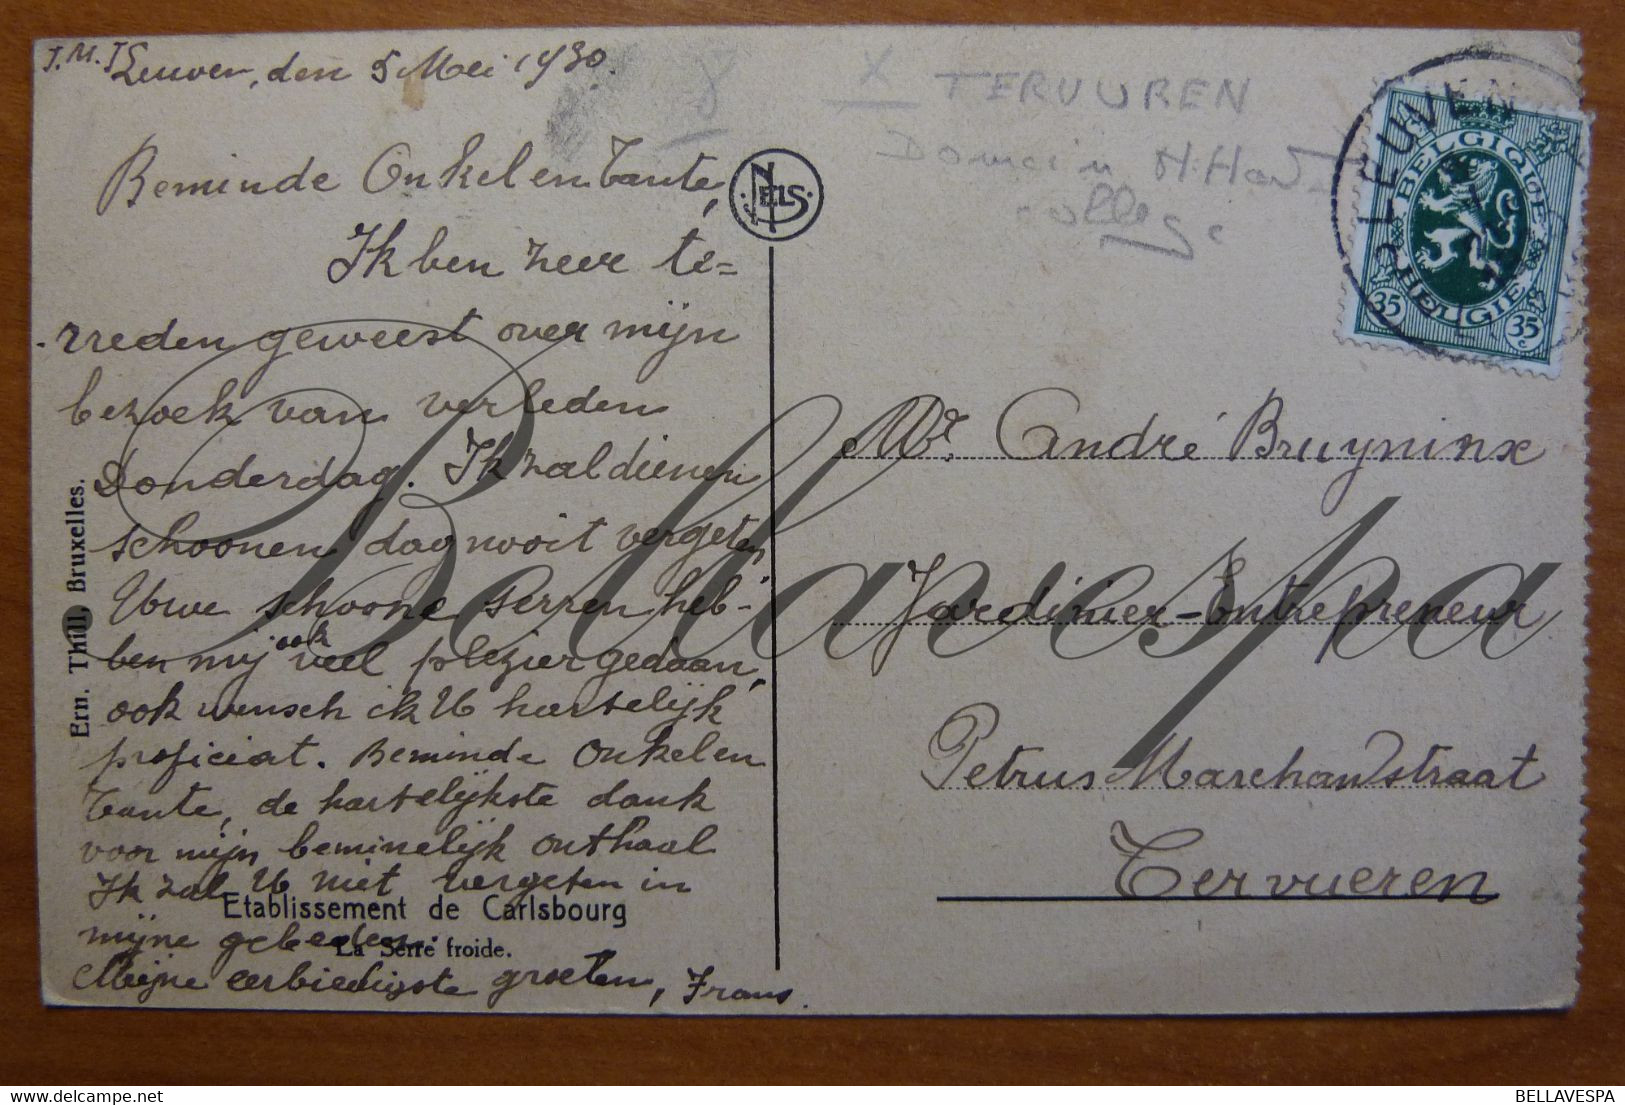 J.M.J.
Leuven, den 5 Mei 1930.
Beminde Onkel en Tante,
Ik ben zeer te=
vreden geweest over mijn
bezoek van verleden
Donderdag. Ik zal dienen
schoonen dag nooit vergeten,
Uwe schoone serren heb-
ben mij ook veel plezier gedaan,
ook wensch ik U hartelijk
proficiat. Beminde Onkel en
Tante, de hartelijkste dank
voor mijn beminelijk onthaal
Ik zal U niet vergeten in
mijne gebeden.
Mijne eerbiedigste groeten, Frans.
Etablissement de Carlsbourg
La Serre froide.
Ern. Thill, Bruxelles.
NELS
X TERVUREN
Domein
College
LEUVEN
BELGIQUE
BELGIË
35 35
Mr. André Bruyninx
Jardinier-Entrepreneur
Petrus Marchandstraat
Tervueren
Bellavespa
BELLAVESPA